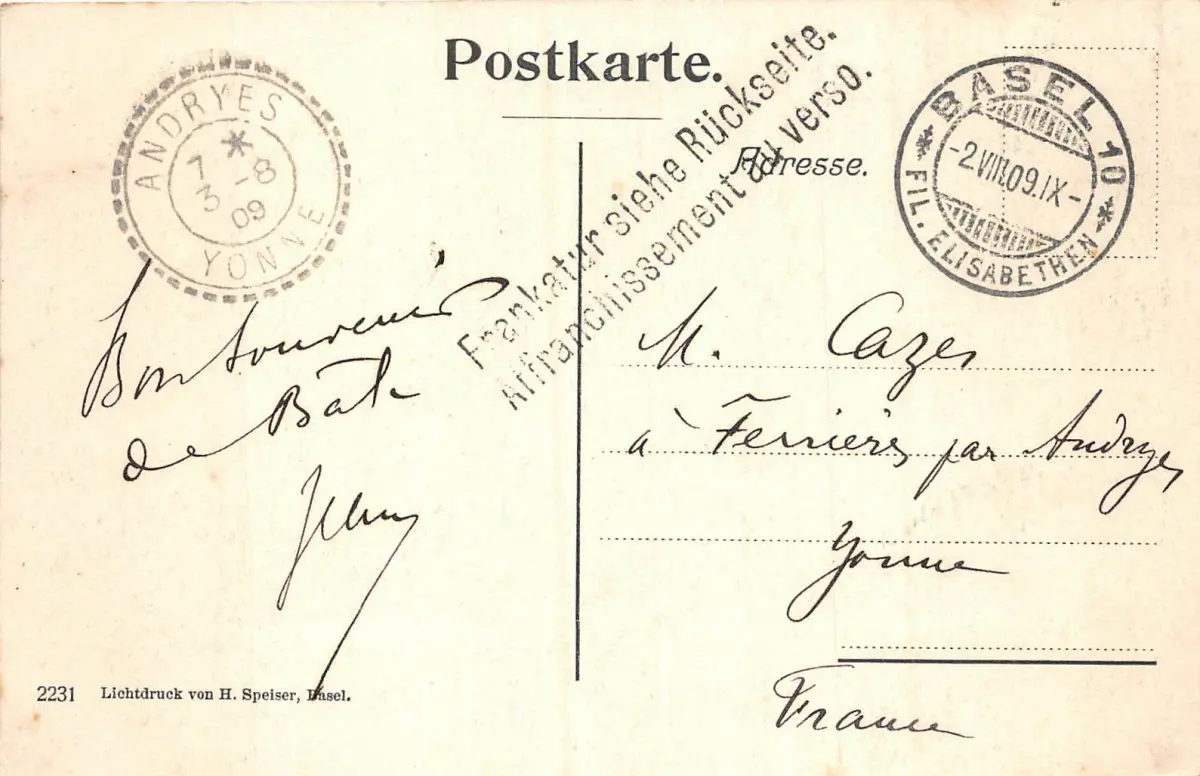 Postkarte.
ANDRYES
*
7
3 -8
09
YONNE
Frankatur siehe Rückseite.
Affranchissement au verso.
Adresse.
BASEL 10
-2.VIII.09.IX-
FIL. ELISABETHEN
Bon souvenir
de Bâle
M. Cazes
à Ferrières par Andryes
Yonne
France
2231 Lichtdruck von H. Speiser, Basel.